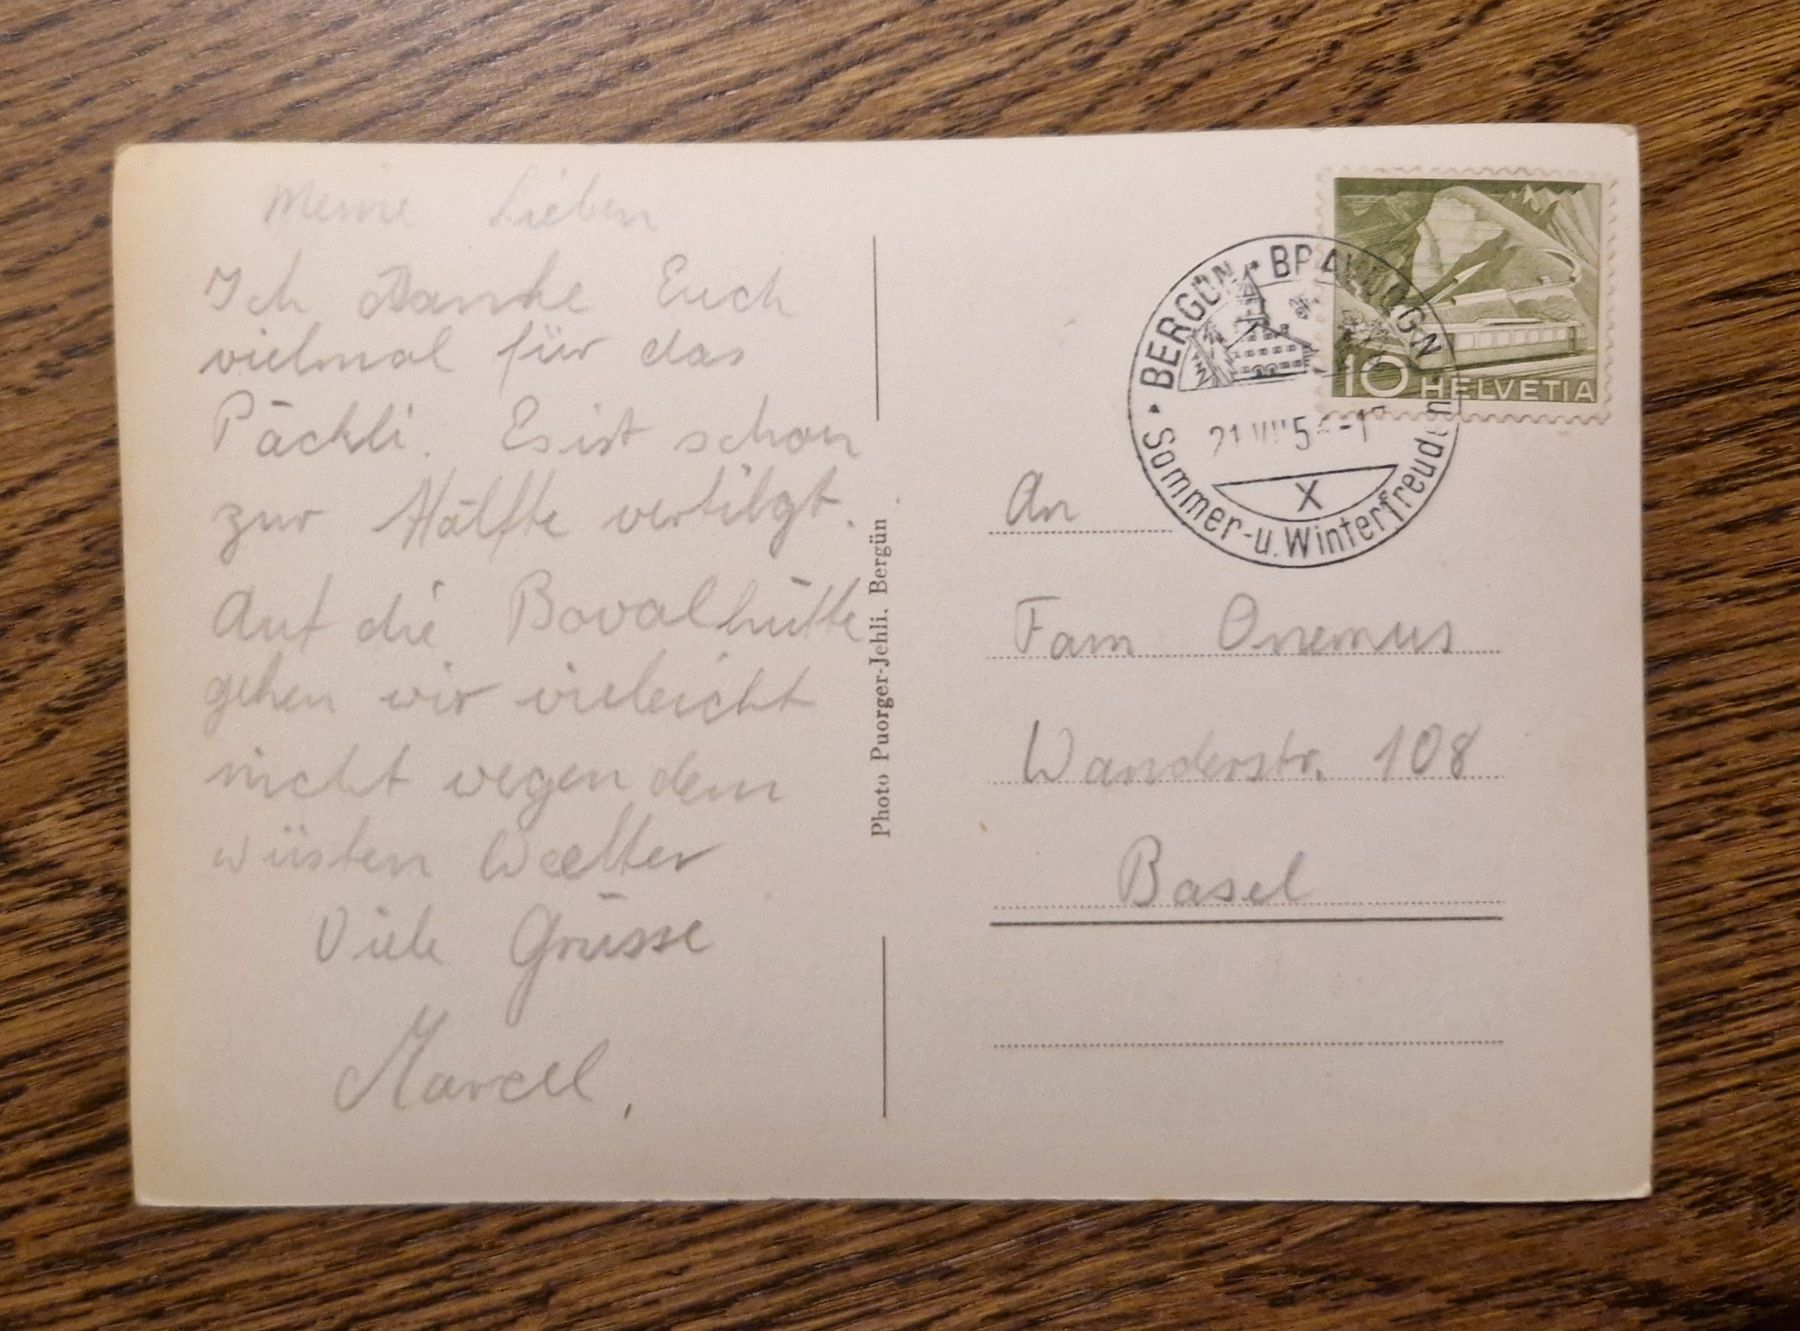 Meine Lieben
Ich Danke Euch
vielmal für das
Päckli. Es ist schon
zur Hälfte vertilgt.
Auf die Bovalhütte
gehen wir vieleicht
nicht wegen dem
wüsten Wetter
Viele Grüsse
Marcel,
Photo Puorger-Jehli, Bergün
10 HELVETIA
BERGÜN * BRAVUOGN
21.VII 5
X
* Sommer-u. Winterfreuden
An
Fam Onemus
Wanderstr. 108
Basel